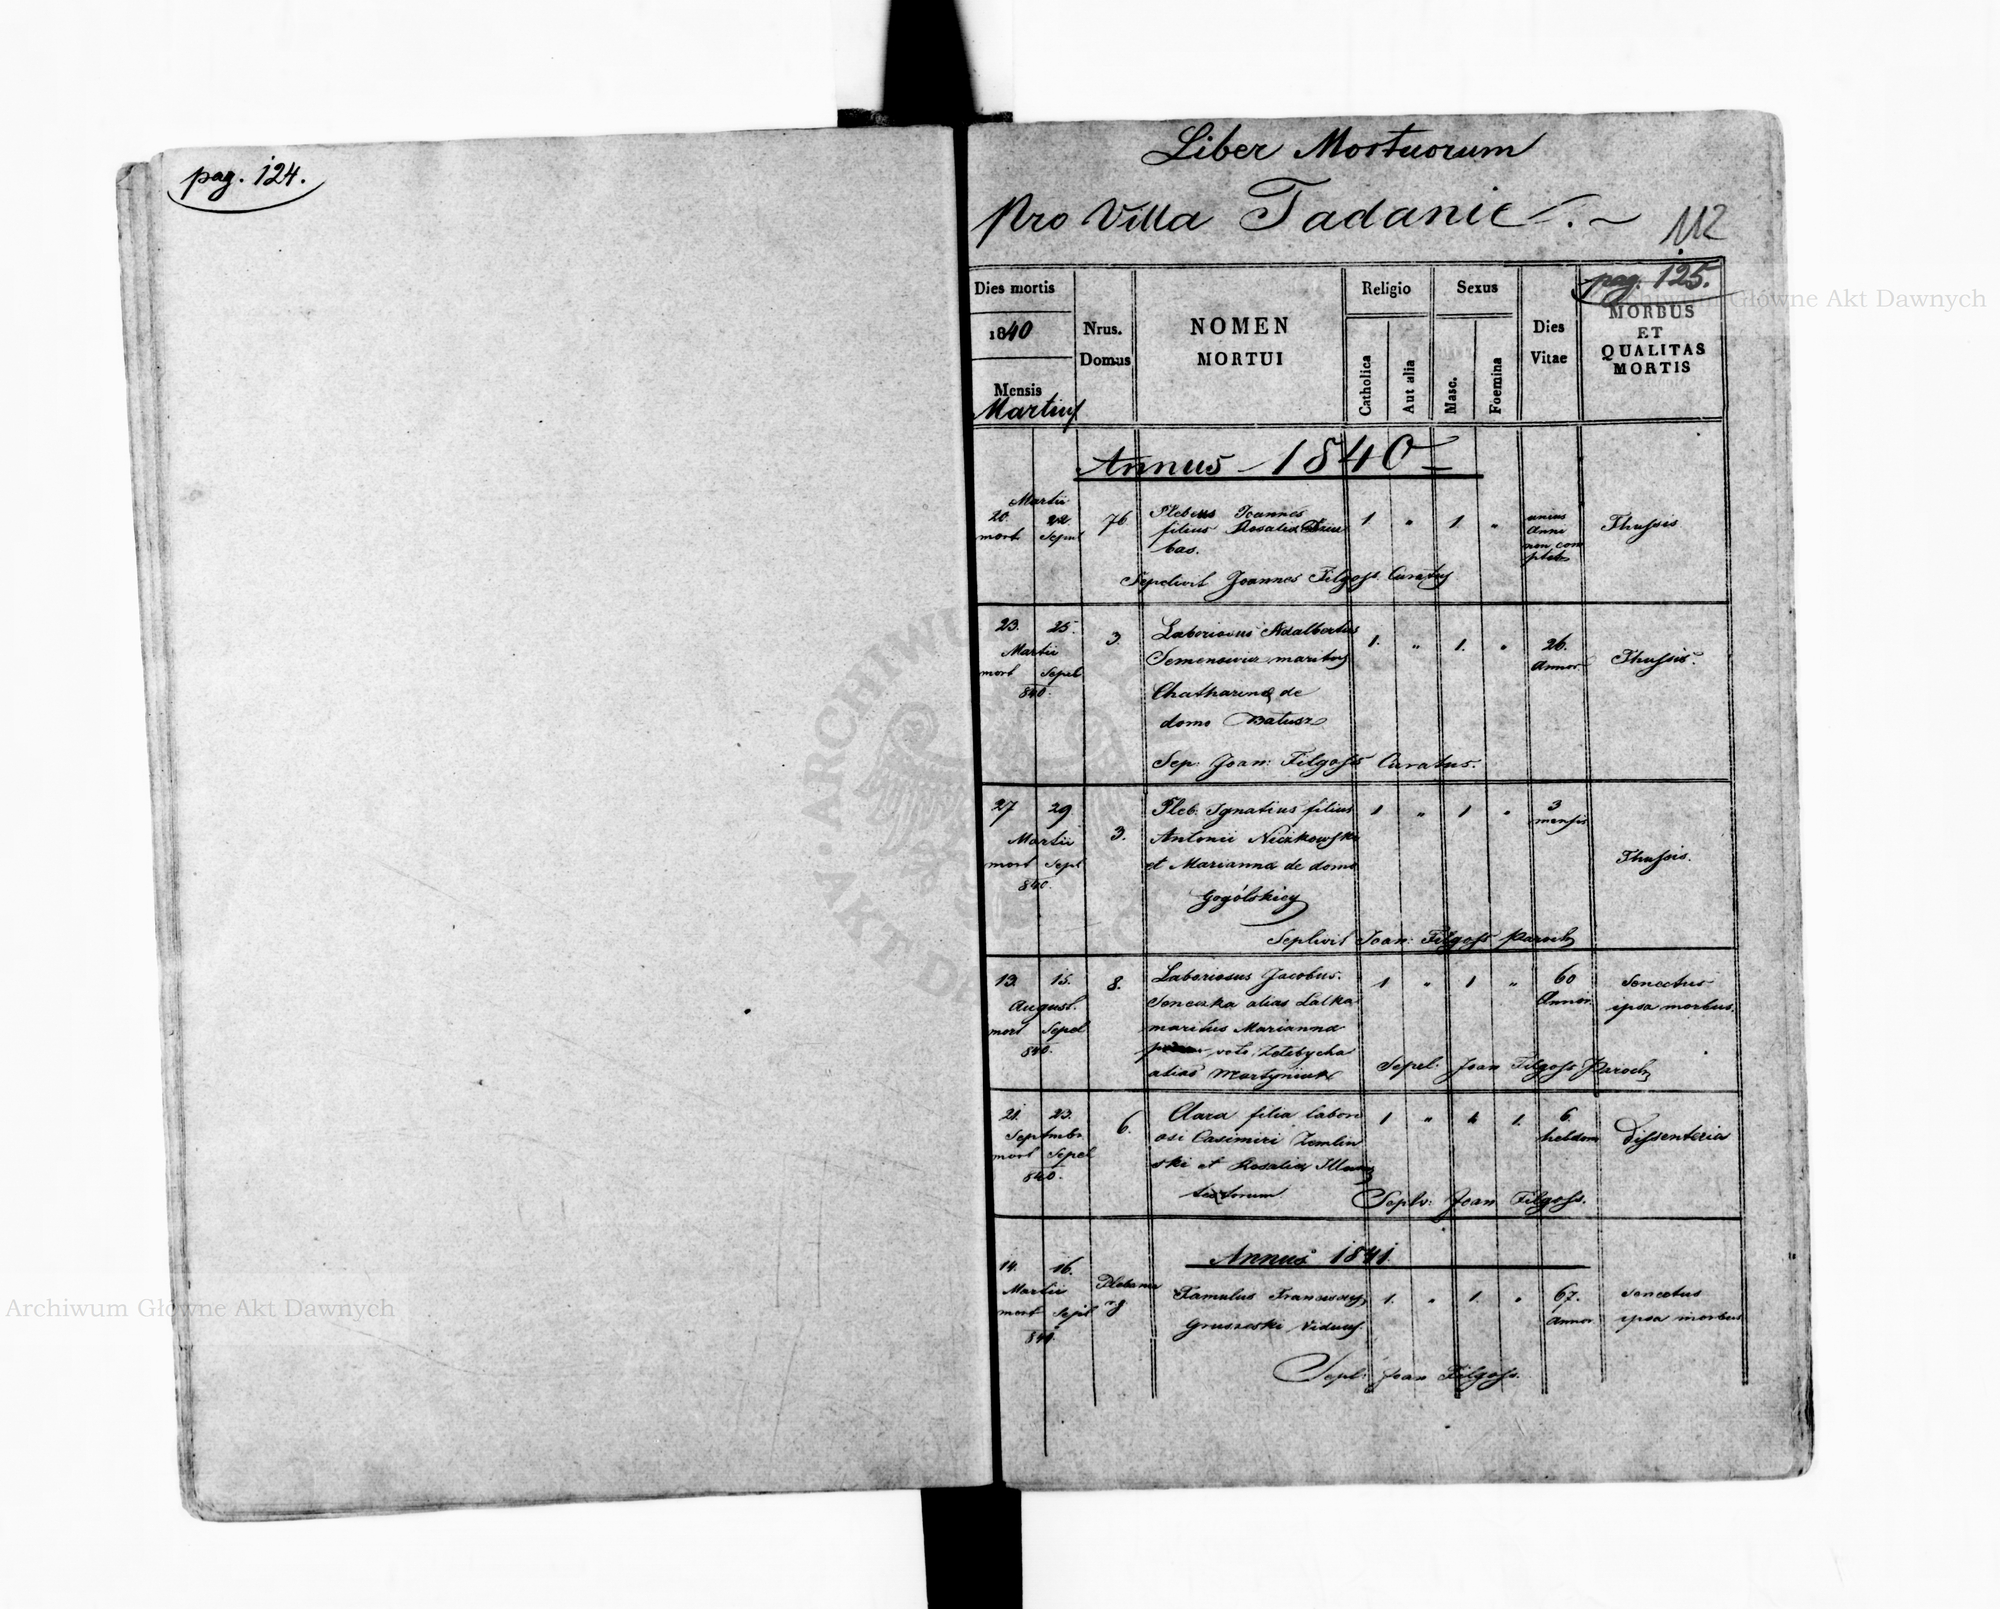 pag. 124.
Liber Mortuorum
pro Villa Tadanie
112
pag. 125.
Dies mortis
1840
Mensis
Martius
Nrus.
Domus
NOMEN
MORTUI
Religio
Catholica
Aut alia
Sexus
Masc.
Foemina
Dies
Vitae
MORBUS
ET
QUALITAS
MORTIS
Annus 1840
Martii
20. 22
mort. Sepul
76
Plebeus Joannes
filius Rosaliae
bas.
1 " 1 "
unius
Anni
non com
pleto
Thussis
Sepelivit Joannes Filgoss Curatus
23. 25.
Martii
mort Sepel
840.
3.
Laboriosus Adalbertus
Semenowicz maritus
Chatharinae de
domo Batusz
1. " 1. "
26.
Annor.
Thussis.
Sep: Joan: Filgoss Curatus.
27 29
Martii
mort Sepl
840.
3.
Pleb. Ignatius filius
Antonii Niczkowski
et Marianna de domo
Gogólskiey
1 " 1 "
3
mensis
Thussis.
Seplivit Joan: Filgoss Paroch
13. 15.
August.
mort Sepel
840.
8.
Laboriosus Jacobus.
Senczka alias Lalka
maritus Marianna
voto
alias Martyniuk
1 " 1 "
60
Annor.
Senectus
ipsa morbus.
Sepel: Joan Filgoss Paroch
21. 23.
Septembr.
mort Sepel
840.
6.
Clara filia labori
osi Casimiri Zemlin
ski et Rosaliae
1 " " 1.
6
hebdom
Dissenteria
Seplv: Joan Filgoss.
Annus 1841.
14. 16.
Martii
mort Sepl
841.
Plebania
Famulus Franciscus
Gruszeski Viduus.
1. " 1. "
67.
Annor.
Senectus
ipsa morbus
Sepl: Joan Filgoss.
Archiwum Główne Akt Dawnych
Archiwum Główne Akt Dawnych